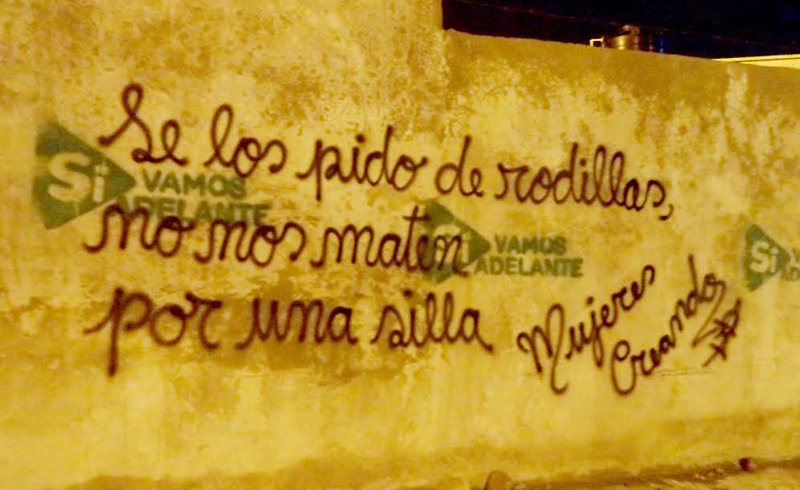 Se los pido de rodillas,
no nos maten
por una silla
Mujeres
Creando
Sí
VAMOS
ADELANTE
VAMOS
ADELANTE
Sí